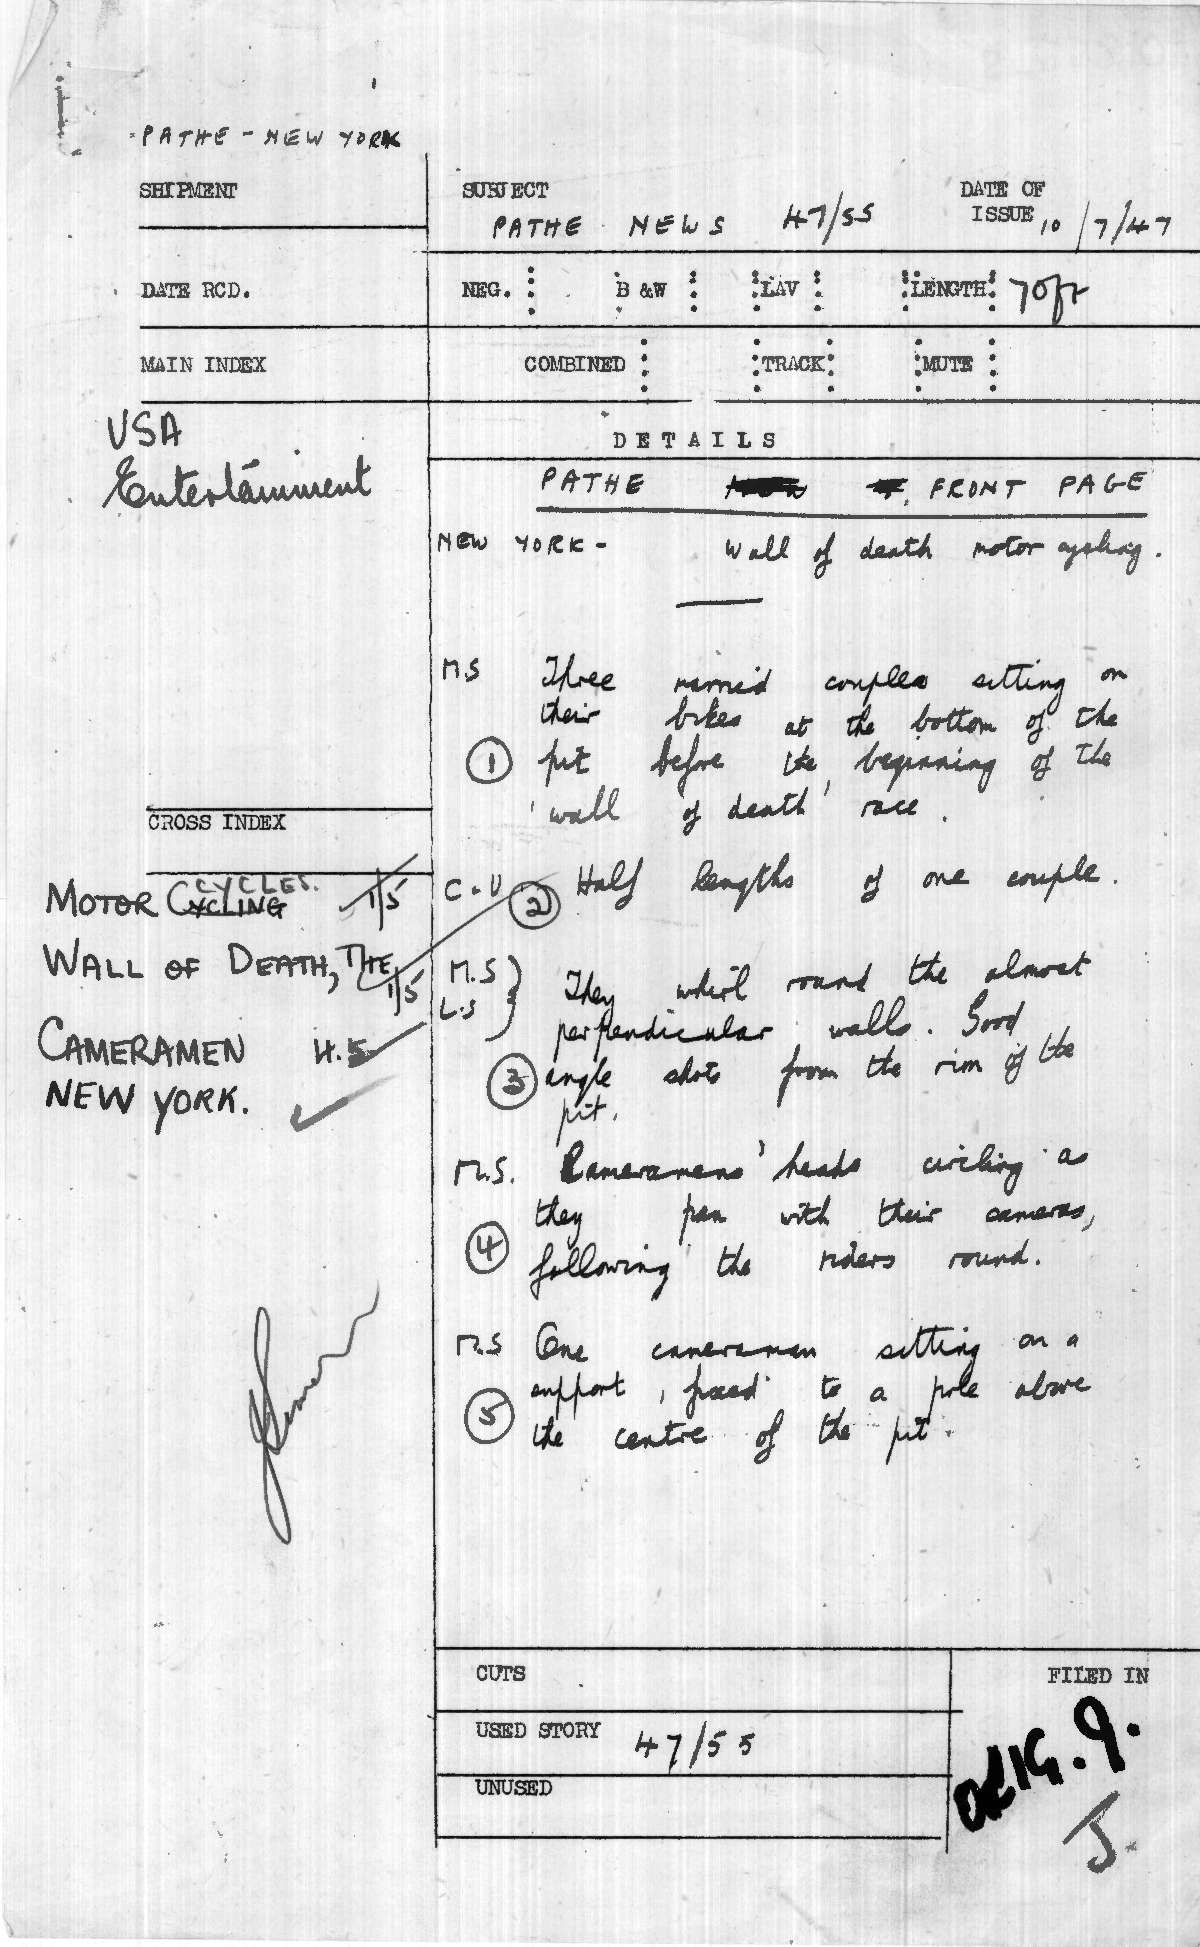 PATHE - NEW YORK
SHIPMENT
SUBJECT
PATHE NEWS 47/55
DATE OF
ISSUE 10/7/47
DATE RCD.
NEG. B &W LAV LENGTH 70ft
MAIN INDEX
COMBINED TRACK MUTE
USA
Entertainment
DETAILS
PATHE FRONT PAGE
NEW YORK - Wall of death motor cycling.
M.S Three married couples sitting on
their bikes at the bottom of the
1 pit before the beginning of the
'wall of death' race.
CROSS INDEX
CYCLES.
MOTOR CYCLING 1/5
WALL OF DEATH, THE
1/5
CAMERAMEN H.5
NEW YORK.
C.U. 2 Half lengths of one couple.
M.S } They whirl round the almost
L.S } perpendicular walls. Good
3 angle shots from the rim of the
pit.
M.S. Cameramens' heads circling as
they pan with their cameras,
4 following the riders round.
M.S One cameraman sitting on a
support, fixed to a pole above
5 the centre of the pit.
CUTS
USED STORY 47/55
UNUSED
FILED IN
ORIG. 9.
J.